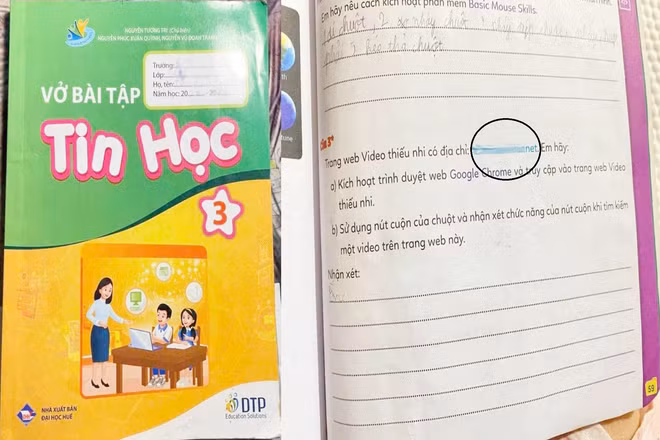 NGUYỄN TƯƠNG TRI (Chủ biên)
NGUYỄN PHÚC XUÂN QUỲNH, NGUYỄN VÕ ĐOAN TRANG
VỞ BÀI TẬP
Trường:
Lớp:
Họ, tên:
Năm học: 20
Tin Học
3
NHÀ XUẤT BẢN
ĐẠI HỌC HUẾ
DTP
Education Solutions
Em hãy nêu cách kích hoạt phần mềm Basic Mouse Skills.
chuột
Trang web Video thiếu nhi có địa chỉ: net. Em hãy:
a) Kích hoạt trình duyệt web Google Chrome và truy cập vào trang web Video
thiếu nhi.
b) Sử dụng nút cuộn của chuột và nhận xét chức năng của nút cuộn khi tìm kiếm
một video trên trang web này.
Nhận xét:
59